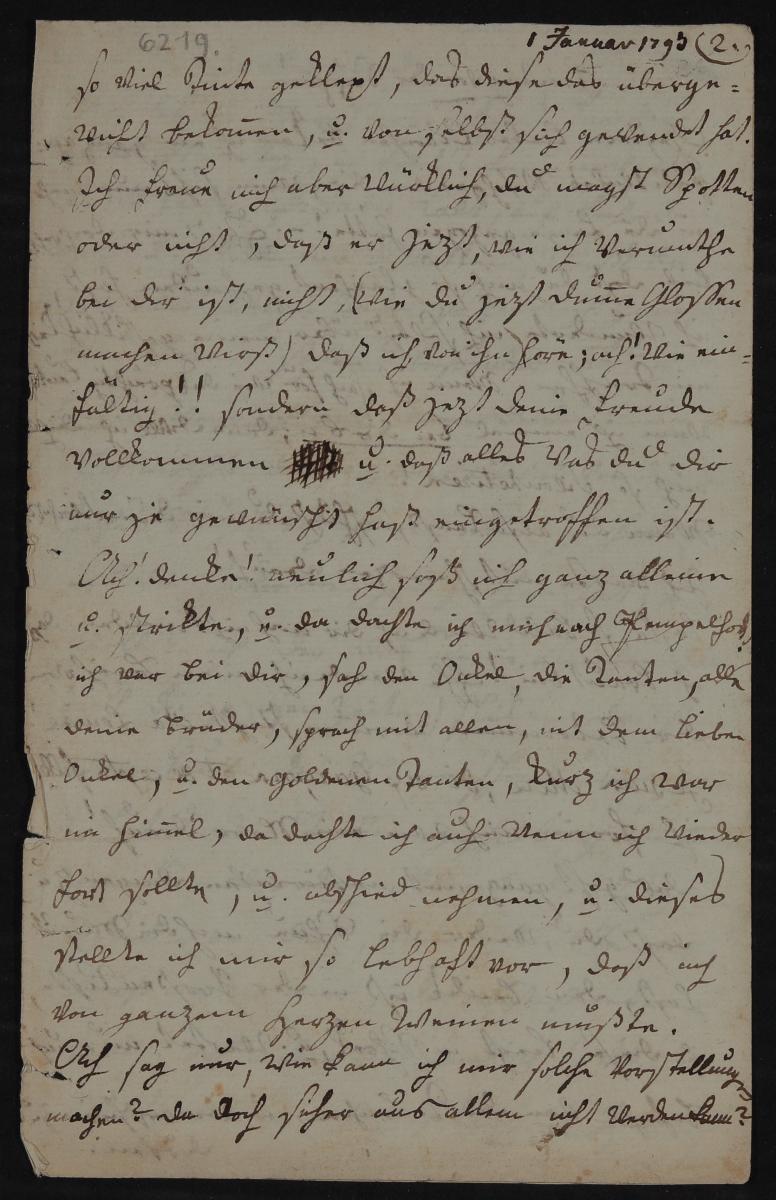 6219.
1 Januar 1793 (2.)
so viel Tinte geklext, das diese das überge=
wicht bekomen, u. von selbst sich gewendet hat.
Ich freue mich aber würklich, du magst Spotten
oder nicht, daß er jezt, wie ich vermuthe
bei dir ist, nicht, (wie du jezt dume Glossen
machen wirst) daß ich von ihm höre; ach! wie ein=
fältig!! sondern daß jezt deine Freude
vollkommen u. daß alles was du dir
nur je gewünscht hast eingetroffen ist.
Ach! denke! neulich saß ich ganz alleine
u. strikte, u. da dachte ich mich nach Pempelfort,
ich war bei dir, sah den Onkel, die Tanten, alle
deine Brüder, sprach mit allen, mit dem lieben
Onkel, u. den goldenen Tanten, kurz ich war
im Himel, da dachte ich auch wenn ich wieder
fort sollte, u. abschied nehmen, u. dieses
stellte ich mir so lebhaft vor, daß ich
von ganzem Herzen weinen mußte.
Ach sag nur, wie kann ich mir solche Vorstellung
machen? da doch sicher aus allem nicht werden kann?